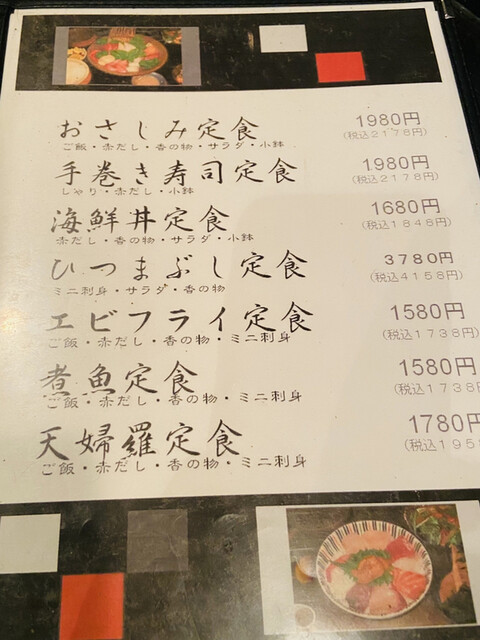 おさしみ定食 1980円
ご飯・赤だし・香の物・サラダ・小鉢 (税込2178円)
手巻き寿司定食 1980円
しゃり・赤だし・小鉢 (税込2178円)
海鮮丼定食 1680円
赤だし・香の物・サラダ・小鉢 (税込1848円)
ひつまぶし定食 3780円
ミニ刺身・サラダ・香の物 (税込4158円)
エビフライ定食 1580円
ご飯・赤だし・香の物・ミニ刺身 (税込1738円)
煮魚定食 1580円
ご飯・赤だし・香の物・ミニ刺身 (税込1738円
天婦羅定食 1780円
ご飯・赤だし・香の物・ミニ刺身 (税込195